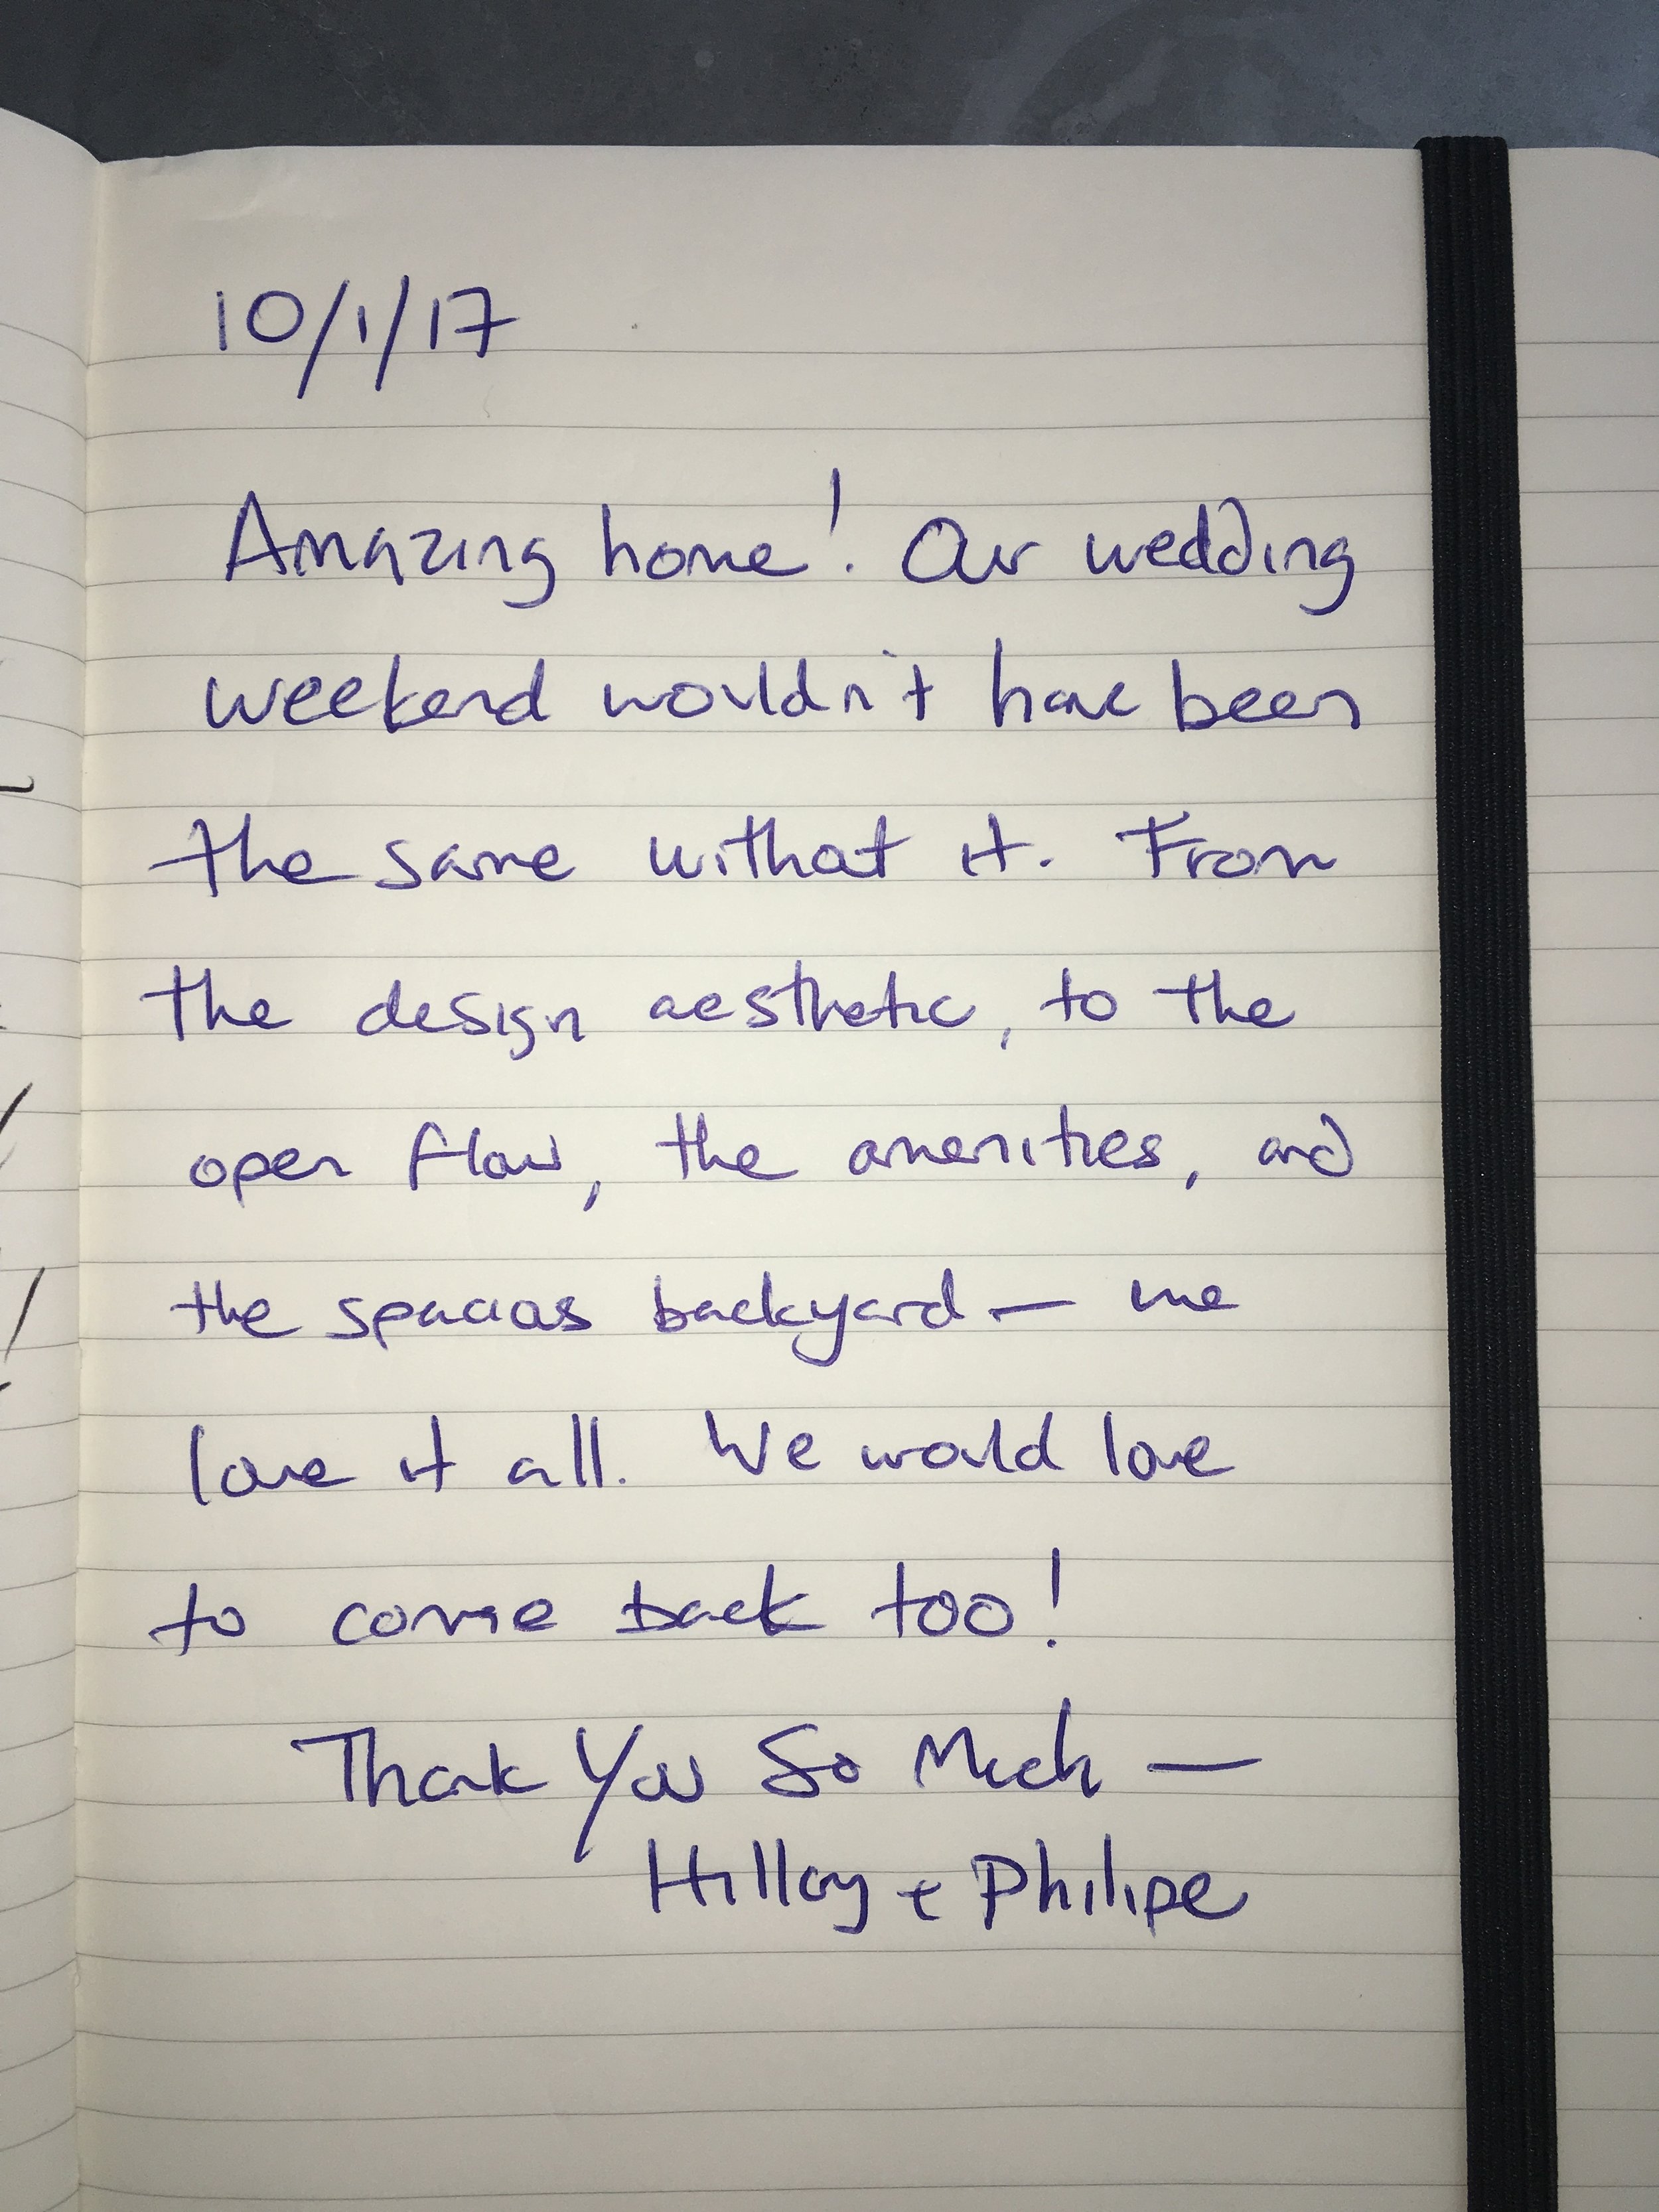 10/1/17
Amazing home! Our wedding
weekend wouldn't have been
the same without it. From
the design aesthetic, to the
open flow, the amenities, and
the spacious backyard — we
love it all. We would love
to come back too!
Thank You So Much —
Hillary + Philipe